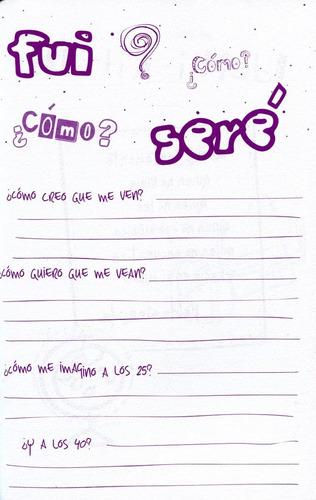 fui ? ¿Cómo?
¿Cómo? seré
¿CÓMO CREO QUE ME VEN?
¿CÓMO QUIERO QUE ME VEAN?
¿CÓMO ME IMAGINO A LOS 25?
¿Y A LOS 40?